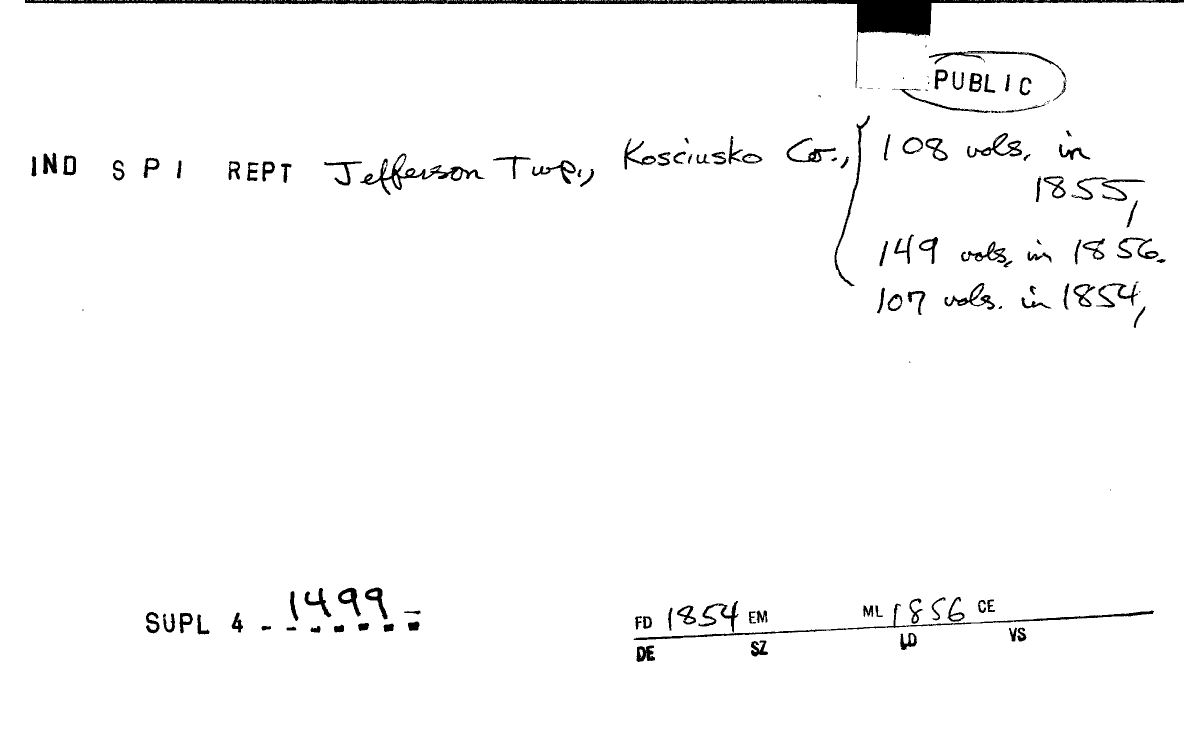 PUBLIC
IND S P I REPT Jefferson Twp., Kosciusko Co., 108 vols. in
1855,
149 vols. in 1856.
107 vols. in 1854,
SUPL 4 - 1499 -
FD 1854 EM ML 1856 CE
DE SZ LD VS